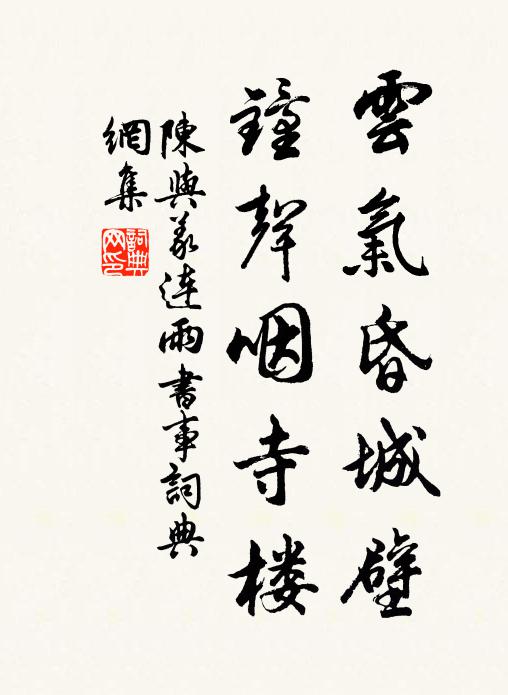 雲氣昏城壁
鐘聲咽寺楼
陳與義連雨書事詞典
網集
詞典网印